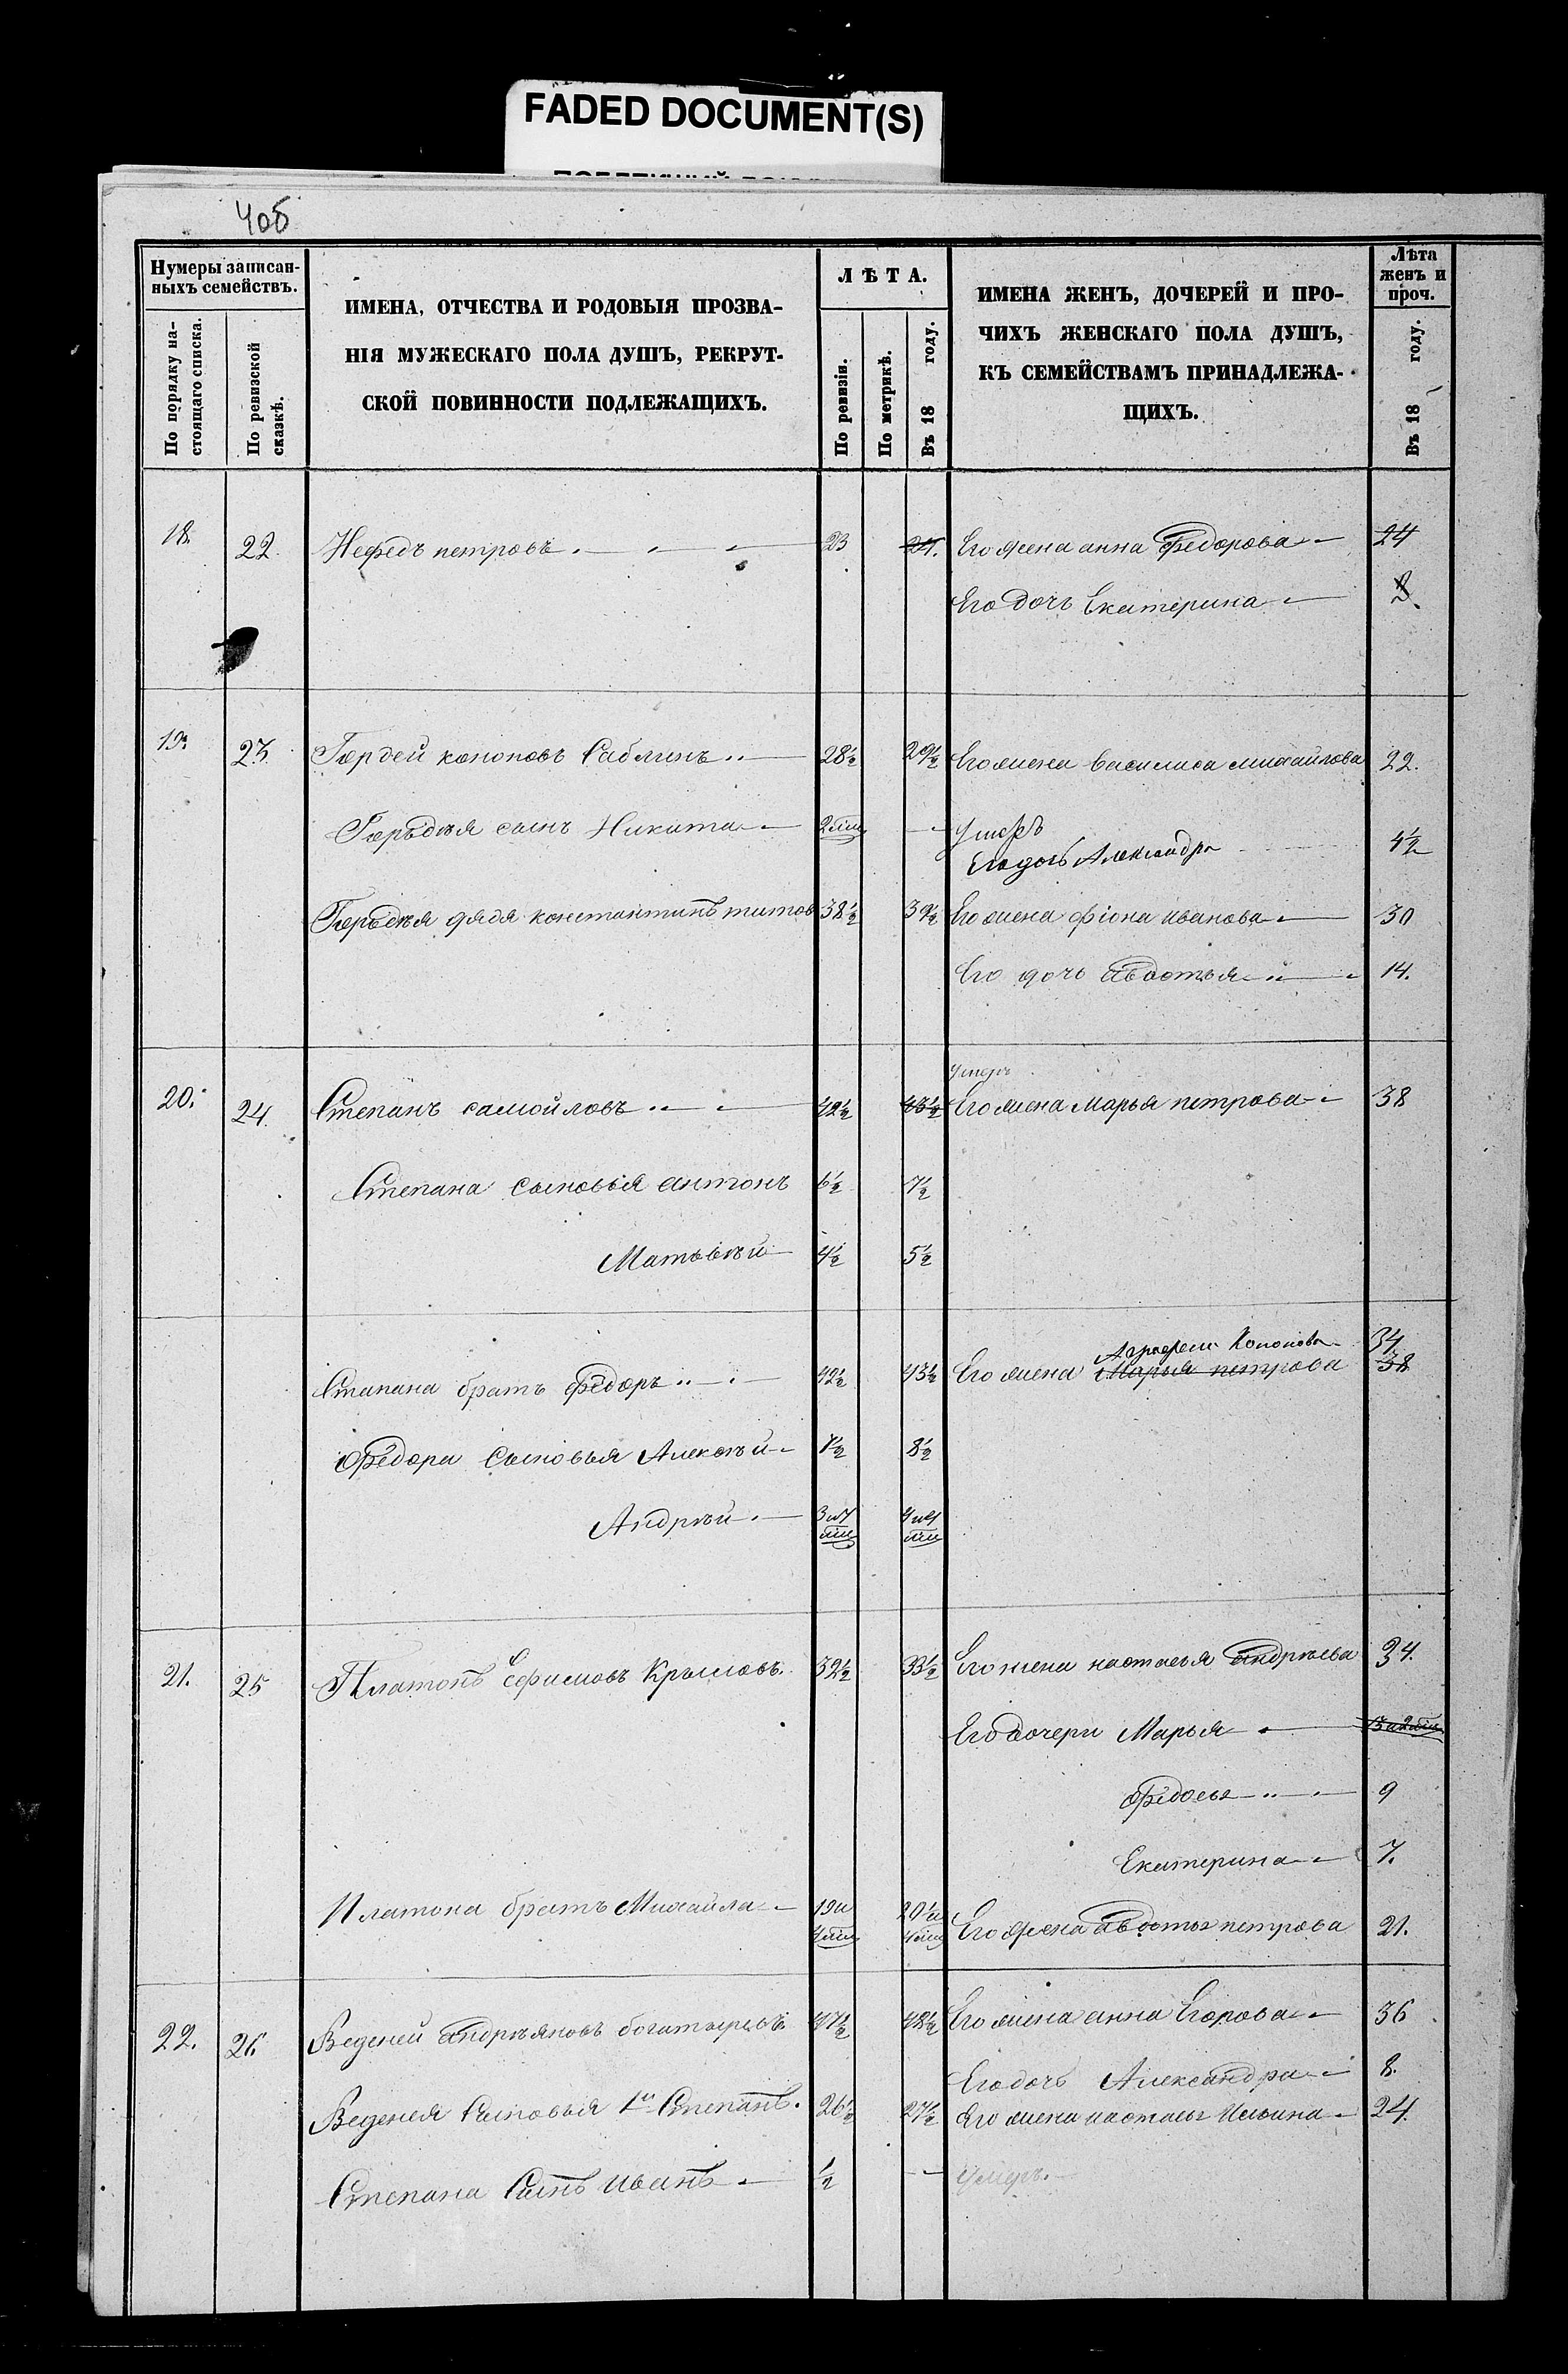 FADED DOCUMENT(S)
40б
Нумеры записан-
ныхъ семействъ.
По порядку на-
стоящаго списка.
По ревизской
сказкѣ.
ИМЕНА, ОТЧЕСТВА И РОДОВЫЯ ПРОЗВА-
НІЯ МУЖЕСКАГО ПОЛА ДУШЪ, РЕКРУТ-
СКОЙ ПОВИННОСТИ ПОДЛЕЖАЩИХЪ.
ЛѢТА.
По ревизіи.
По метрикѣ.
Въ 18 году.
ИМЕНА ЖЕНЪ, ДОЧЕРЕЙ И ПРО-
ЧИХЪ ЖЕНСКАГО ПОЛА ДУШЪ,
КЪ СЕМЕЙСТВАМЪ ПРИНАДЛЕЖА-
ЩИХЪ.
Лѣта
женъ и
проч.
Въ 18 году.
18. 22. Нефедъ петровъ. 23 24. Его жена анна Федорова 24
Его дочь Екатерина
19. 23. Гордей кононовъ Саблинъ 28½ 29½ Его жена василиса михайлова 22.
Горьдѣя сынъ Никита 2 мѣ умеръ
Его дочь Александра 4½
Горьдѣя дядя константинъ титов 38½ 39½ Его жена фіона иванова 30
Его дочь авдотья 14.
умеръ
20. 24. Степанъ самойловъ 42½ 43½ Его жена Марья петрова 38
Степана сыновья антонъ 6½ 7½
Матьвѣй 4½ 5½
Аграфена Кононова 34.
Степана братъ Федоръ 42½ 43½ Его жена Марья петрова 38
Федора Сыновья Алексѣй 7½ 8½
Андрѣй
21. 25 Платонъ Ефимовъ Крыловъ. 32½ 33½ Его жена настасья андрѣева 34.
Его дочери Марья
Федосья 9
Екатерина 7.
Платона братъ Михайла 19 и Его жена авдотья петрова 21.
22. 26. Веденей андрѣяновъ богатыревъ 47½ 48½ Его жена анна Егорова 36
Его дочь Александра 8.
Веденея Сыновья 1й Степанъ. 26½ 27½ Его жена настасья Ильина 24.
Степана Сынъ иванъ ½ умеръ.